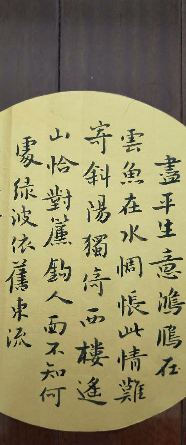 盡平生意鴻鴈在
雲魚在水惆悵此情難
寄斜陽獨倚西樓遙
山恰對簾鈎人面不知何
處綠波依舊東流